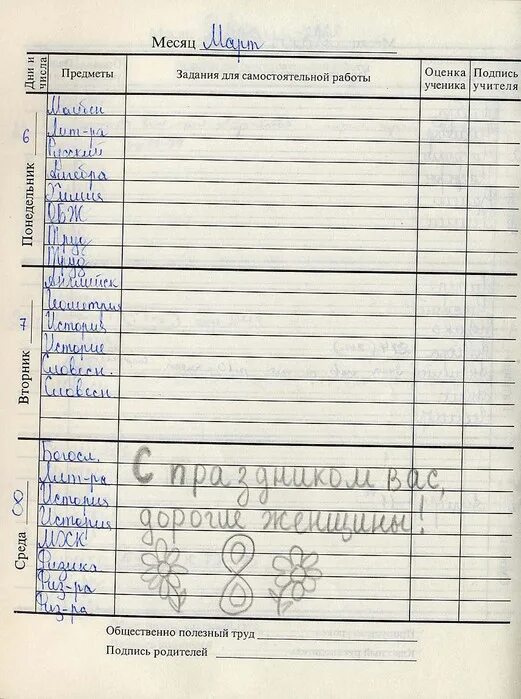 Месяц Март
Дни и числа Предметы Задания для самостоятельной работы Оценка ученика Подпись учителя
Понедельник 6
Лит-ра
Русский
Алгебра
Химия
ОБЖ
Труд
Труд
Вторник 7
Английск
Геометрия
История
История
Словесн.
Словесн
Среда 8
Богосл.
Лит-ра
История
История
МХК
Физика
Физ-ра
Физ-ра
С праздником вас,
дорогие женщины!
8
Общественно полезный труд
Подпись родителей